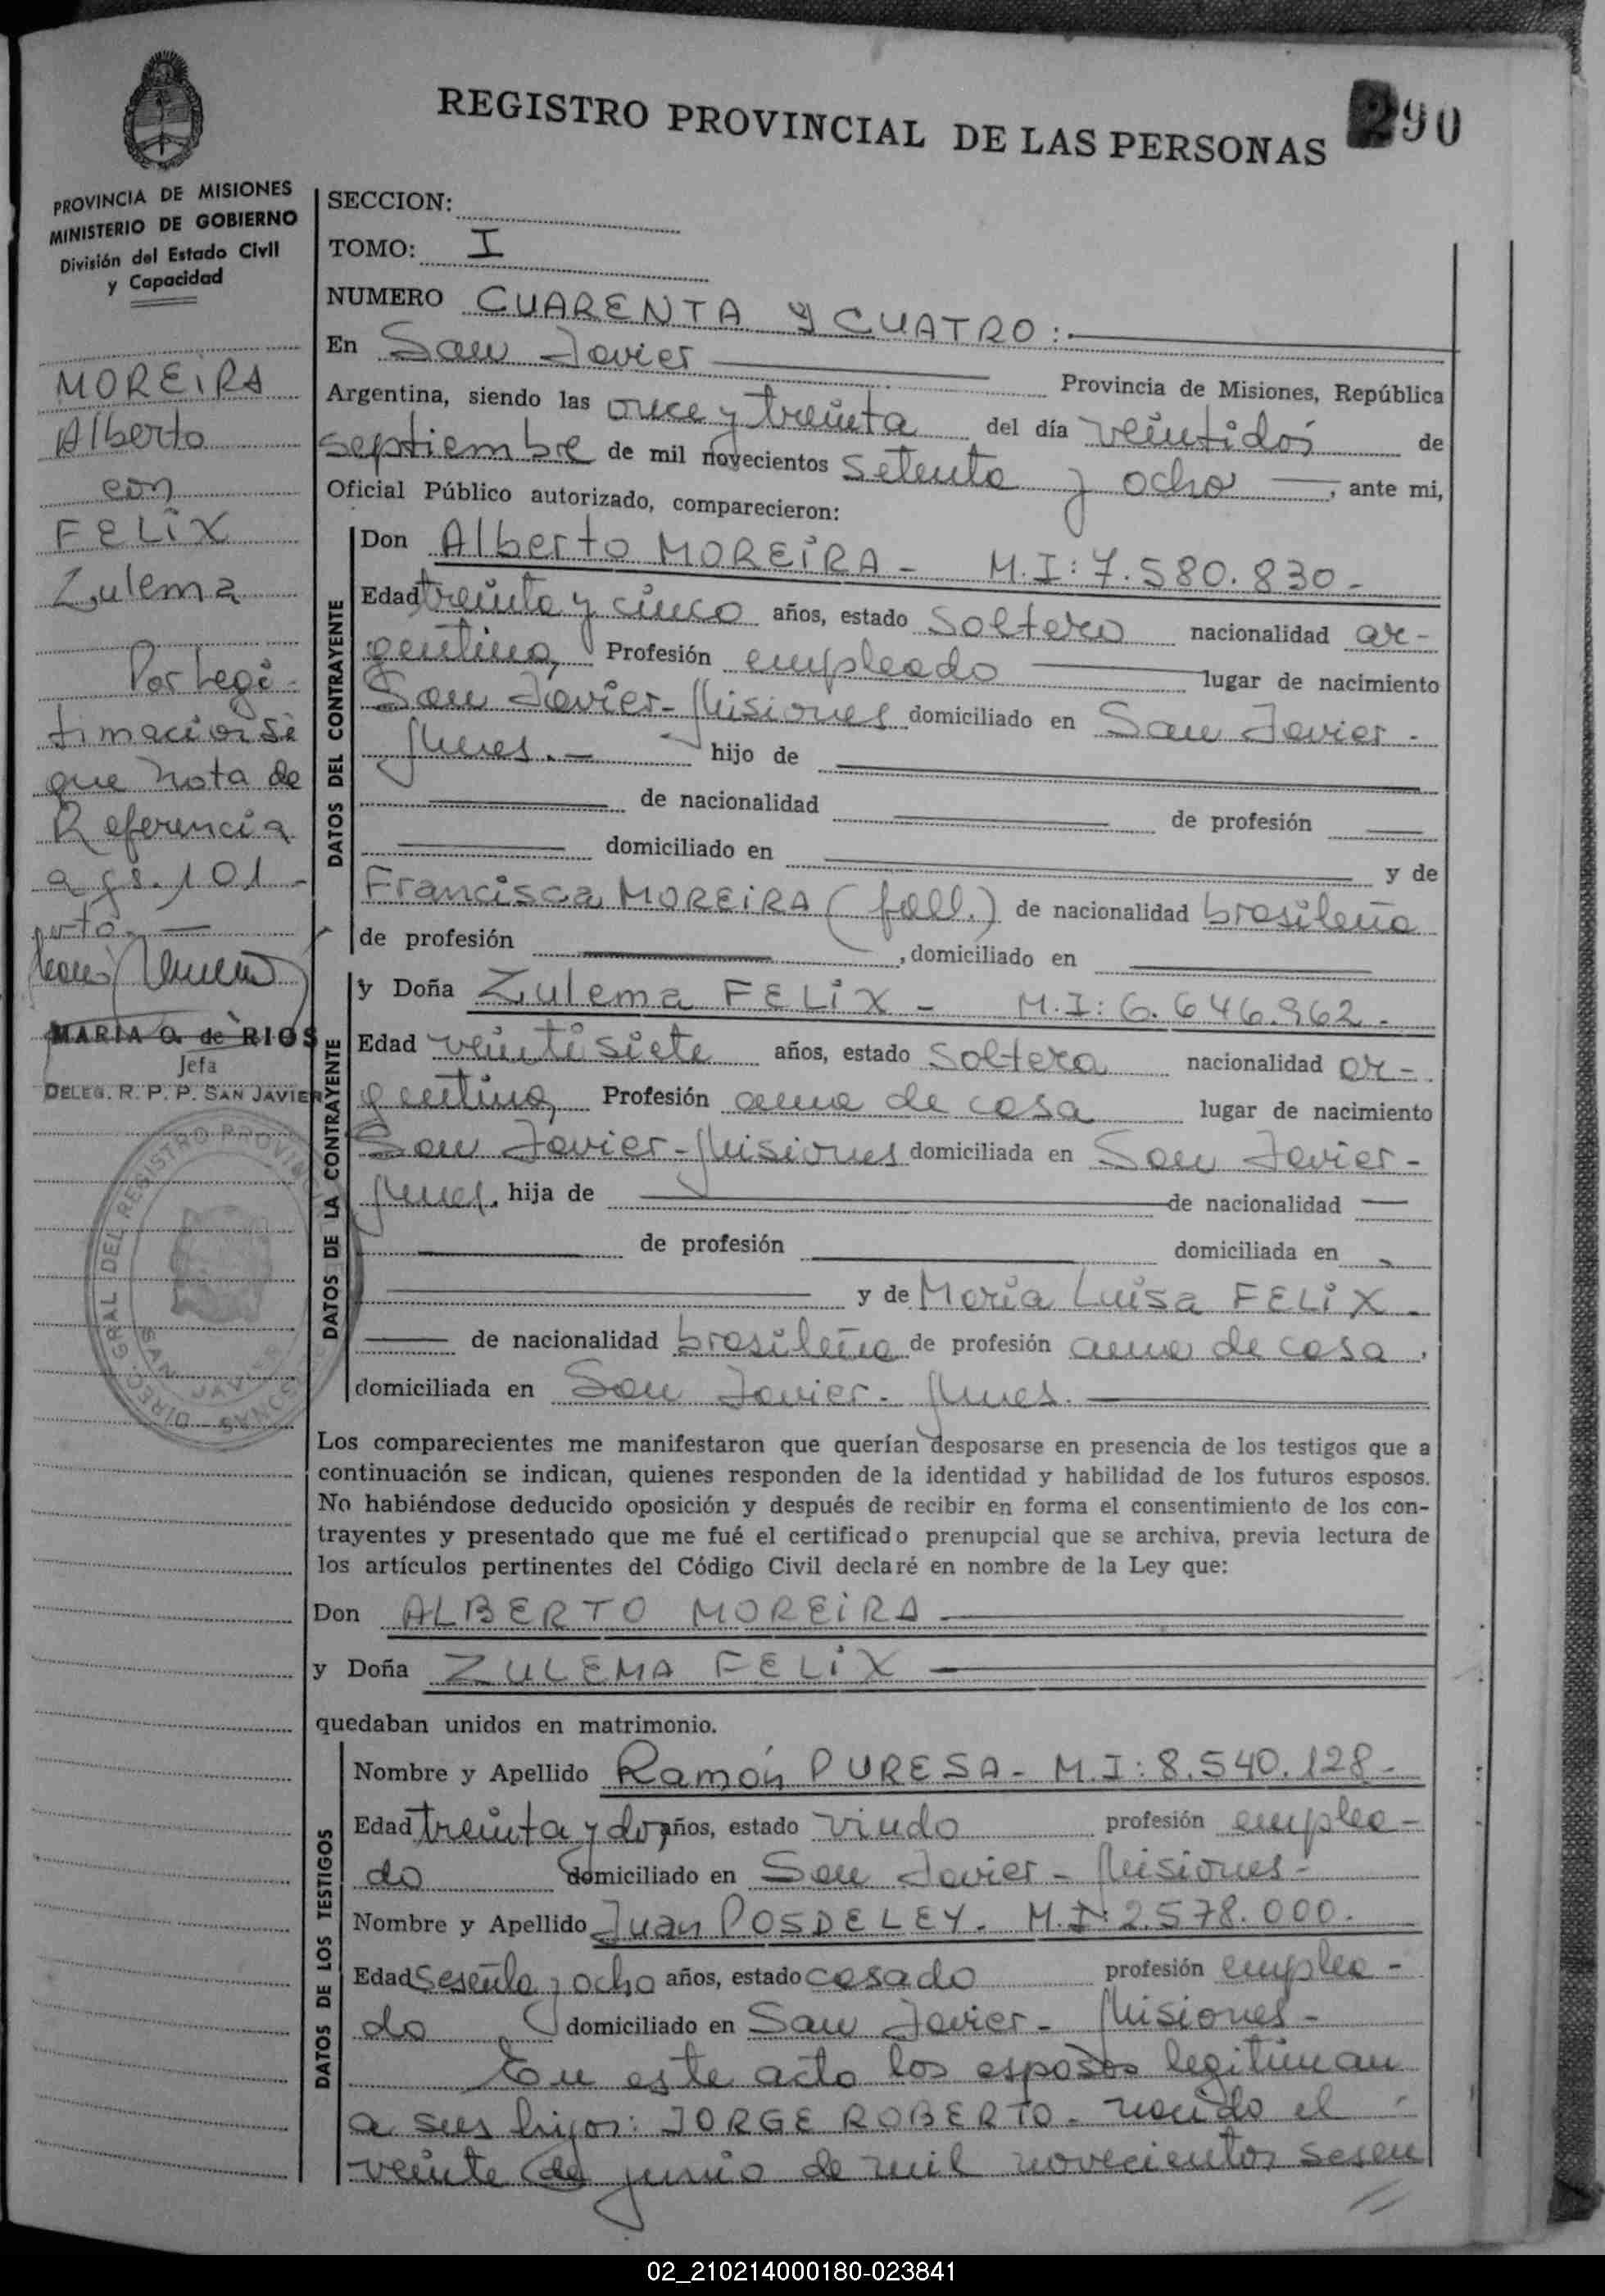 REGISTRO PROVINCIAL DE LAS PERSONAS 290
PROVINCIA DE MISIONES
MINISTERIO DE GOBIERNO
División del Estado Civil
y Capacidad
MOREIRA
Alberto
con
FELIX
Zulema
Por Legi-
timación si
que nota de
Referencia
a fs. 101
MARIA O. de RIOS
Jefa
DELEG. R. P. P. SAN JAVIER
SECCION:
TOMO: I
NUMERO CUARENTA Y CUATRO:
En San Javier Provincia de Misiones, República
Argentina, siendo las once y treinta del día veintidós de
septiembre de mil novecientos setenta y ocho, ante mi,
Oficial Público autorizado, comparecieron:
DATOS DEL CONTRAYENTE
Don Alberto MOREIRA - M.I: 7.580.830-
Edad treinta y cinco años, estado soltero nacionalidad ar-
gentina, Profesión empleado lugar de nacimiento
San Javier-Misiones domiciliado en San Javier-
Mnes.- hijo de
de nacionalidad de profesión
domiciliado en y de
Francisca MOREIRA (fall.) de nacionalidad brasileña
de profesión , domiciliado en
DATOS DE LA CONTRAYENTE
y Doña Zulema FELIX - M.I: 6.646.962.-
Edad veintisiete años, estado soltera nacionalidad ar-
gentina, Profesión ama de casa lugar de nacimiento
San Javier-Misiones domiciliada en San Javier-
Mnes. hija de de nacionalidad
de profesión domiciliada en
y de María Luisa FELIX -
de nacionalidad brasileña de profesión ama de casa,
domiciliada en San Javier- Mnes.
Los comparecientes me manifestaron que querían desposarse en presencia de los testigos que a
continuación se indican, quienes responden de la identidad y habilidad de los futuros esposos.
No habiéndose deducido oposición y después de recibir en forma el consentimiento de los con-
trayentes y presentado que me fué el certificado prenupcial que se archiva, previa lectura de
los artículos pertinentes del Código Civil declaré en nombre de la Ley que:
Don ALBERTO MOREIRA
y Doña ZULEMA FELIX
quedaban unidos en matrimonio.
DATOS DE LOS TESTIGOS
Nombre y Apellido Ramón PURESA- M.I: 8.540.128-
Edad treinta y dos años, estado viudo profesión emplea-
do domiciliado en San Javier- Misiones-
Nombre y Apellido Juan POSDELEY. M.I: 2.578.000.
Edad sesenta y ocho años, estado casado profesión emplea-
do domiciliado en San Javier- Misiones-
En este acto los esposos legitiman
a sus hijos: JORGE ROBERTO- nacido el
veinte de junio de mil novecientos sesen
02_210214000180-023841